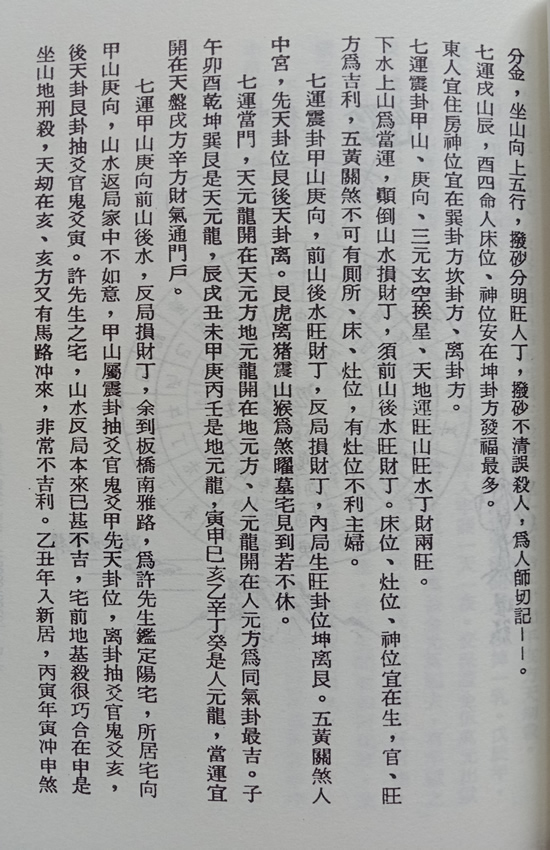 分金，坐山向上五行，撥砂分明旺人丁，撥砂不清誤殺人，爲人師切記——。
七運戌山辰，酉四命人床位、神位安在坤卦方發福最多。
東人宜住房神位宜在巽卦方坎卦方、离卦方。
七運震卦甲山、庚向、三元玄空挨星、天地運旺山旺水丁財兩旺。
下水上山爲當運，顚倒山水損財丁，須前山後水旺財丁。床位、灶位、神位宜在生，官、旺
方爲吉利，五黃關煞不可有厠所、床、灶位，有灶位不利主婦。
七運震卦甲山庚向，前山後水旺財丁，反局損財丁，內局生旺卦位坤离艮。五黃關煞人
中宮，先天卦位艮後天卦离。艮虎离猪震山猴爲煞曜墓宅見到若不休。
七運當門，天元龍開在天元方地元龍開在地元方、人元龍開在人元方爲同氣卦最吉。子
午卯酉乾坤巽艮是天元龍，辰戌丑未甲庚丙壬是地元龍，寅申巳亥乙辛丁癸是人元龍，當運宜
開在天盤戌方辛方財氣通門戶。
七運甲山庚向前山後水，反局損財丁，余到板橋南雅路，爲許先生鑑定陽宅，所居宅向
甲山庚向，山水返局家中不如意，甲山屬震卦抽爻官鬼爻甲先天卦位，离卦抽爻官鬼爻亥，
後天卦艮卦抽爻官鬼爻寅。許先生之宅，山水反局本來已甚不吉，宅前地基殺很巧合在申是
坐山地刑殺，天刼在亥、亥方又有馬路冲來，非常不吉利。乙丑年入新居，丙寅年寅冲申煞